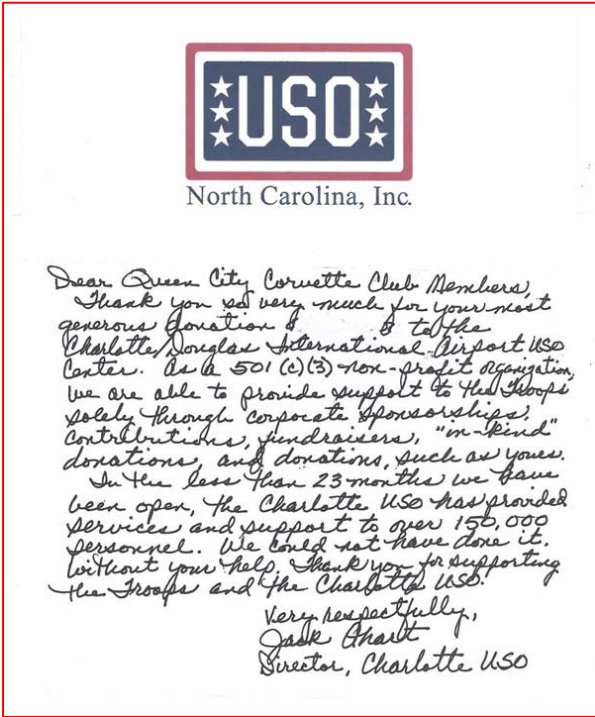 USO
North Carolina, Inc.
Dear Queen City Corvette Club Members,
Thank you so very much for your most
generous donation to the
Charlotte/Douglas International Airport USO
Center. As a 501 (c)(3) non-profit organization,
we are able to provide support to the Troops
solely through corporate sponsorships,
contributions, fundraisers, "in-kind"
donations, and donations, such as yours.
In the less than 23 months we have
been open, the Charlotte USO has provided
services and support to over 150,000
personnel. We could not have done it.
without your help. Thank you for supporting
the Troops and the Charlotte USO.
Very respectfully,
Jack
Director, Charlotte USO